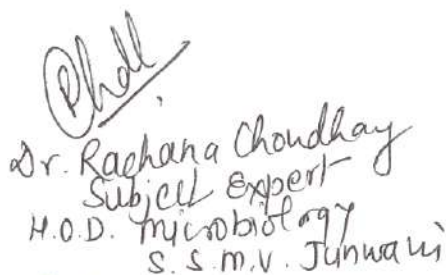 Dr. Rachana Choudhay
Subject Expert
H.O.D. Microbiology
S.S.M.V. Junwani